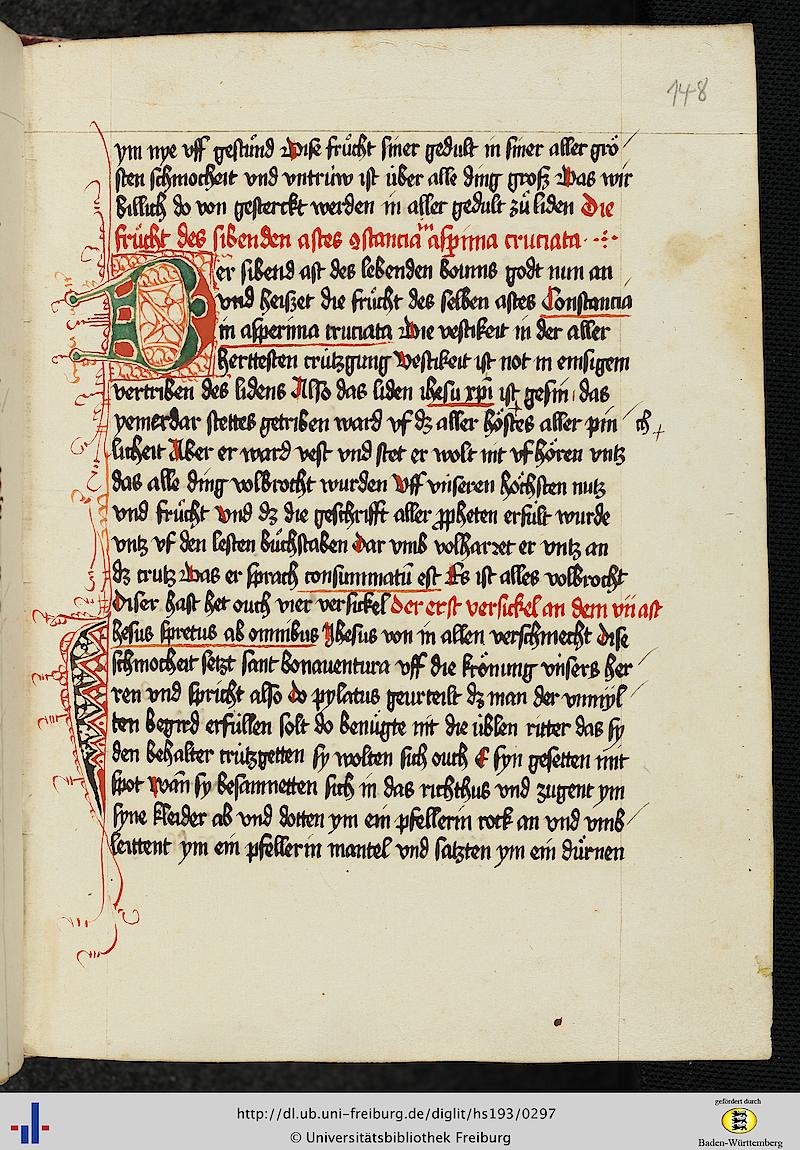 148
ym nye vff gestuͦnd Dise fruͤcht siner gedult in siner aller groͤ
sten schmocheit vnd vntruͤw ist uͤber alle ding groſz Das wir
billich do von gesterckt werden in aller gedult zuͦ liden Die
fruͤcht des sibenden astes ꝯstancia in aspima cruciata
Der sibend ast des lebenden boums godt nun an
vnd heiſzet die fruͤcht des selben astes Constancia
in asperima cruciata Die vestikeit in der aller
herttesten cruͤtzgung Vestikeit ist not in emsigem
vertriben des lidens Also das liden ihesu xp̄i ist gesin das
yemerdar stettes getriben ward vf dz aller hoͤstes aller pin ch
licheit Aber er ward vest vnd stet er wolt nit vf hoͤren vntz
das alle ding volbrocht wurden Vff vnseren hoͤchsten nutz
vnd fruͤcht Vnd dz die geschrifft aller ꝓpheten erfult wurde
vntz vf den lesten buͦchstaben Dar vmb volharret er vntz an
dz crutz Das er sprach consummatū est Es ist alles volbrocht
Diser hast het ouch vier versickel Der erst versickel an dem vii ast
Jhesus spretus ab omnibus Jhesus von in allen verschmecht Dise
schmocheit setzt sant bonauentura vff die kroͤnung vnsers her
ren vnd spricht also Do pylatus geurteilt dz man der vnmyl
ten begird erfuͤllen solt do benuͤgte nit die uͤblen ritter das sy
den behalter cruͤtzgetten sy wolten sich ouch E syn gesetten mit
spot Wan̄ sy besamnetten sich in das richthus vnd zugent ym
syne kleider ab vnd dotten ym ein pfellerin rock an vnd vmb
leittent ym ein pfellerin mantel vnd satzten ym ein duͤrnen
http://dl.ub.uni-freiburg.de/diglit/hs193/0297
© Universitätsbibliothek Freiburg
gefördert durch
Baden-Württemberg